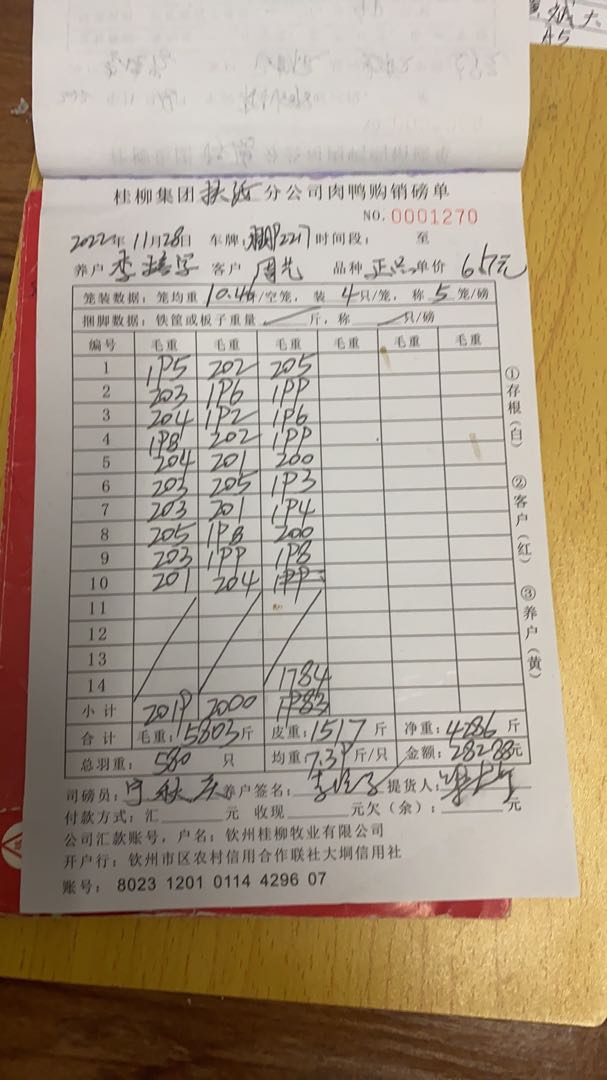 桂柳集团 扶沅 分公司肉鸭购销磅单
NO. 0001270
2022年11月28日 车牌: 2217 时间段: 至
养户 李培军 客户 周先 品种 正品 单价 6.57元
笼装数据: 笼均重 10.46斤/空笼, 装 4 只/笼, 称 5 笼/磅
捆脚数据: 铁筐或板子重量 斤, 称 只/磅
编号 毛重 毛重 毛重 毛重 毛重 毛重
1 195 202 205
2 203 196 199
3 204 192 196
4 198 202 199
5 204 201 200
6 203 205 193
7 203 201 194
8 205 198 200
9 203 199 198
10 201 204 199
11
12
13
14 1784
小计 2019 2000 1983
合计 毛重: 5803斤 皮重: 1517 斤 净重: 4286 斤
总羽重: 580 只 均重: 7.39 斤/只 金额: 28238元
司磅员: 宁秋 养户签名: 提货人:
付款方式: 汇 元 收现 元欠(余): 元
公司汇款账号, 户名: 钦州桂柳牧业有限公司
开户行: 钦州市区农村信用合作联社大垌信用社
账号: 8023 1201 0114 4296 07
①存根(白) ②客户(红) ③养户(黄)